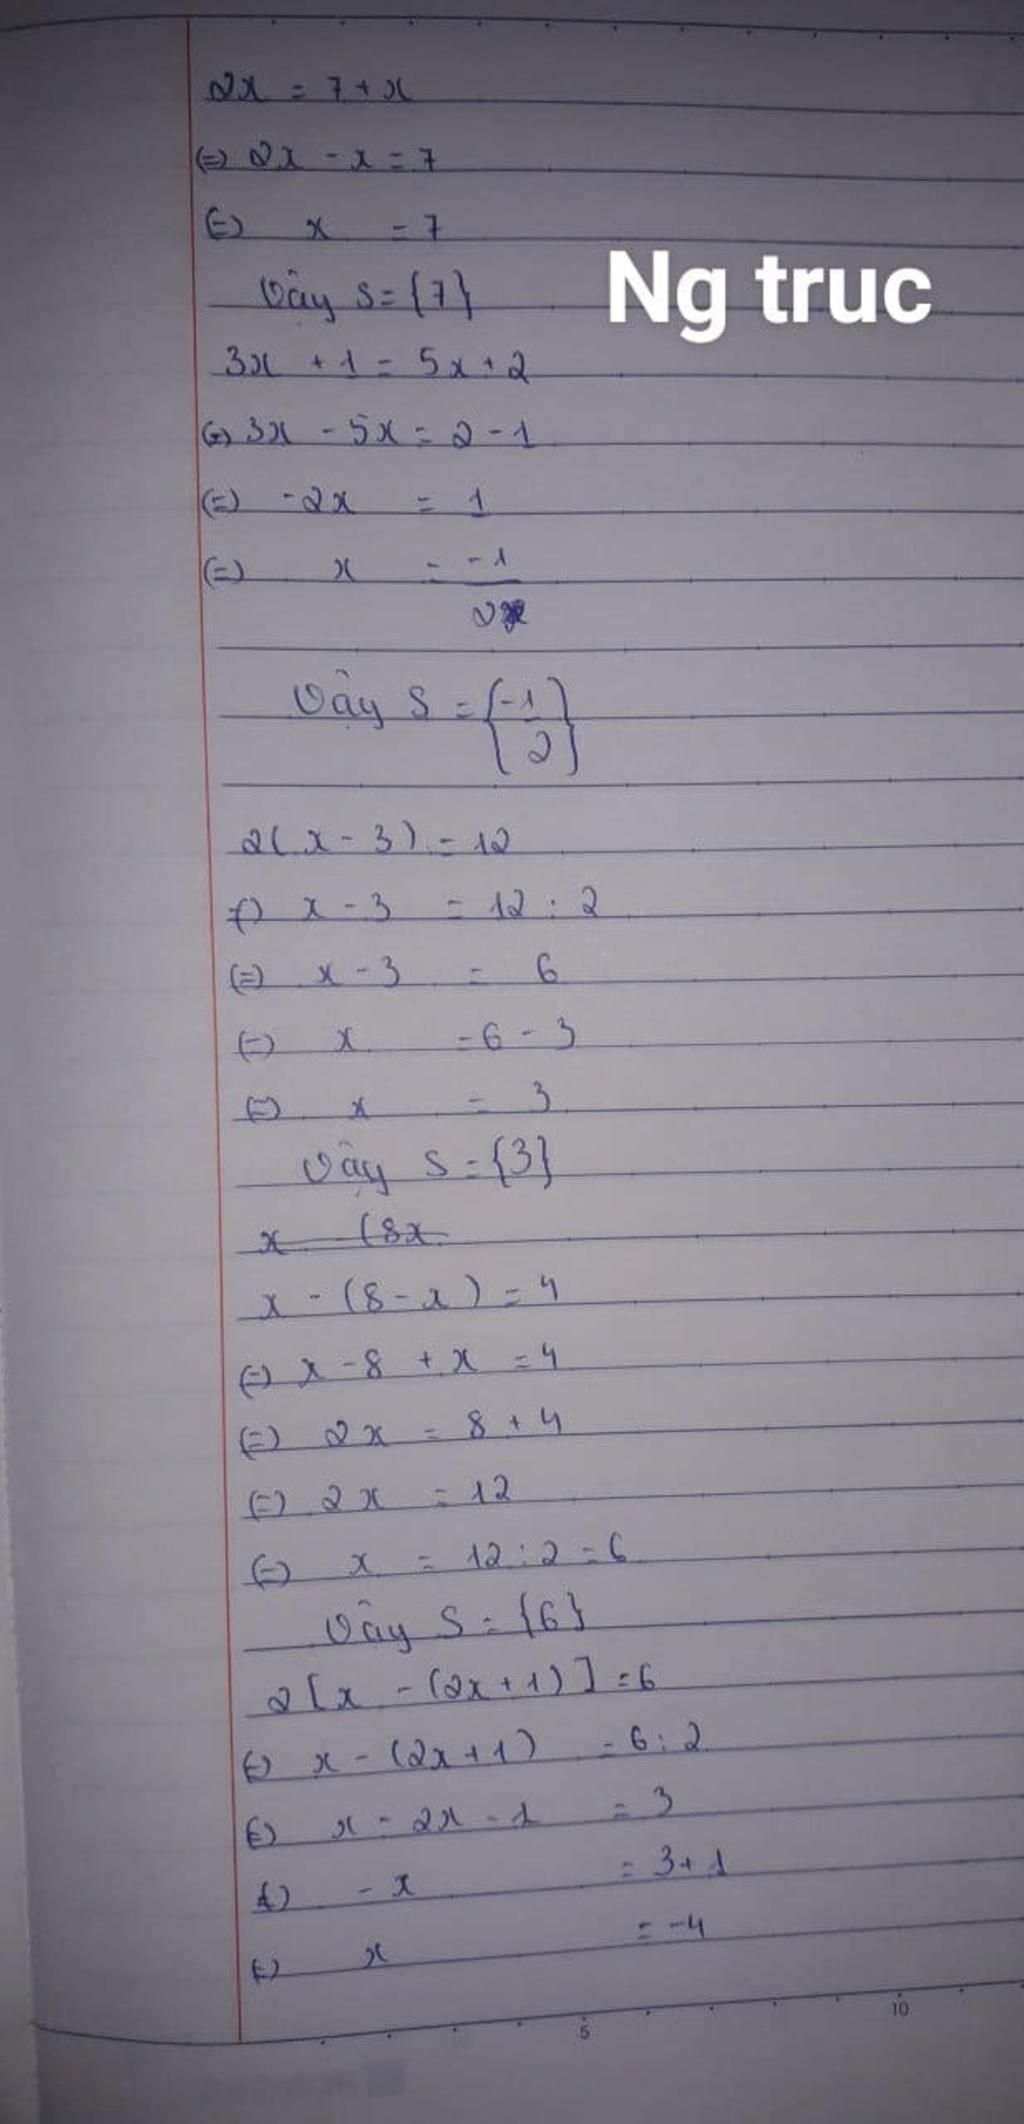 2x = 7 + x
(=) 2x - x = 7
(=) x = 7
Vậy S = {7}
Ng truc
3x + 1 = 5x + 2
(=) 3x - 5x = 2 - 1
(=) -2x = 1
(=) x = -1/2
Vậy S = {-1/2}
2(x - 3) = 12
(=) x - 3 = 12 : 2
(=) x - 3 = 6
(=) x = 6 - 3
(=) x = 3
Vậy S = {3}
x - (8x
x - (8 - x) = 4
(=) x - 8 + x = 4
(=) 2x = 8 + 4
(=) 2x = 12
(=) x = 12 : 2 = 6
Vậy S = {6}
2[x - (2x + 1)] = 6
(=) x - (2x + 1) = 6 : 2
(=) x - 2x - 1 = 3
(=) - x = 3 + 1
(=) x = -4
5 10